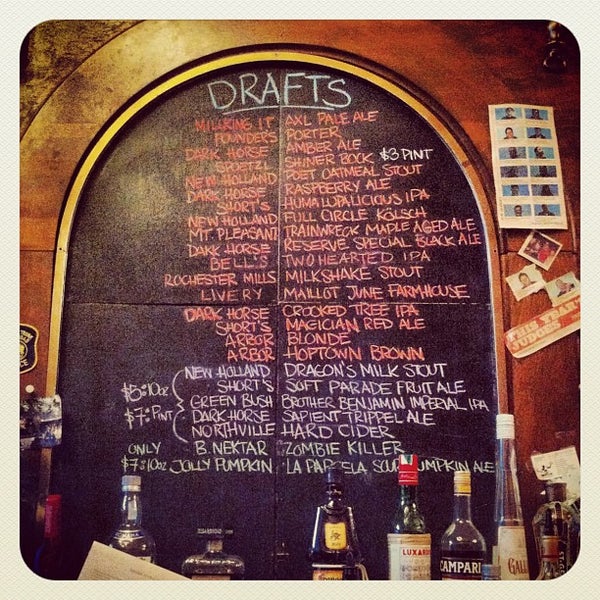 DRAFTS
MILKING IT AXL PALE ALE
FOUNDERS PORTER
DARK HORSE AMBER ALE
SPOETZL SHINER BOCK $3 PINT
NEW HOLLAND POET OATMEAL STOUT
DARK HORSE RASPBERRY ALE
SHORT'S HUMALUPALICIOUS IPA
NEW HOLLAND FULL CIRCLE KÖLSCH
MT PLEASANT TRAINWRECK MAPLE AGED ALE
DARK HORSE RESERVE SPECIAL BLACK ALE
BELL'S TWO HEARTED IPA
ROCHESTER MILLS MILKSHAKE STOUT
LIVERY MAILLOT JUNE FARMHOUSE
DARK HORSE CROOKED TREE IPA
SHORT'S MAGICIAN RED ALE
ARBOR BLONDE
ARBOR HOPTOWN BROWN
NEW HOLLAND DRAGON'S MILK STOUT
$5:10oz SHORT'S SOFT PARADE FRUIT ALE
GREEN BUSH BROTHER BENJAMIN IMPERIAL IPA
$7:PINT DARK HORSE SAPIENT TRIPPEL ALE
NORTHVILLE HARD CIDER
ONLY B. NEKTAR ZOMBIE KILLER
$7:10oz JOLLY PUMPKIN LA PARCELA SOUR PUMPKIN ALE
THIS YEAR'S JUDGES
LUXARDO
CAMPARI
GALL